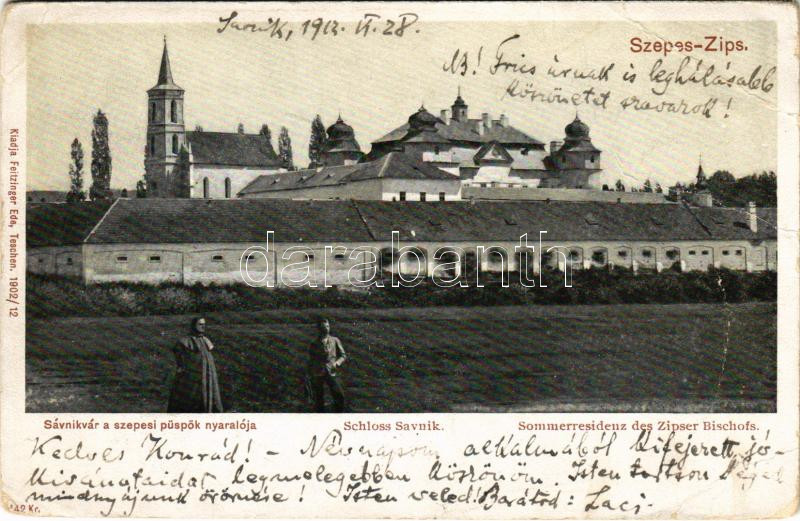 Savnik, 1912. VI. 28.
Szepes-Zips.
NB! Frics úrnak is leghálásabb
köszönetet szavazok!
Kiadja Feitzinger Ede, Teschen. 1902/12
darabanth.com
Sávnikvár a szepesi püspök nyaralója
Schloss Savnik.
Sommerresidenz des Zipser Bischofs.
Kedves Konrád! - Névnapom alkalmából kifejezett jó-
kivánataidat legmelegebben köszönöm. Isten tartson Téged
mindnyájunk örömére! Isten veled! Barátod: Laci.
42 Kr.